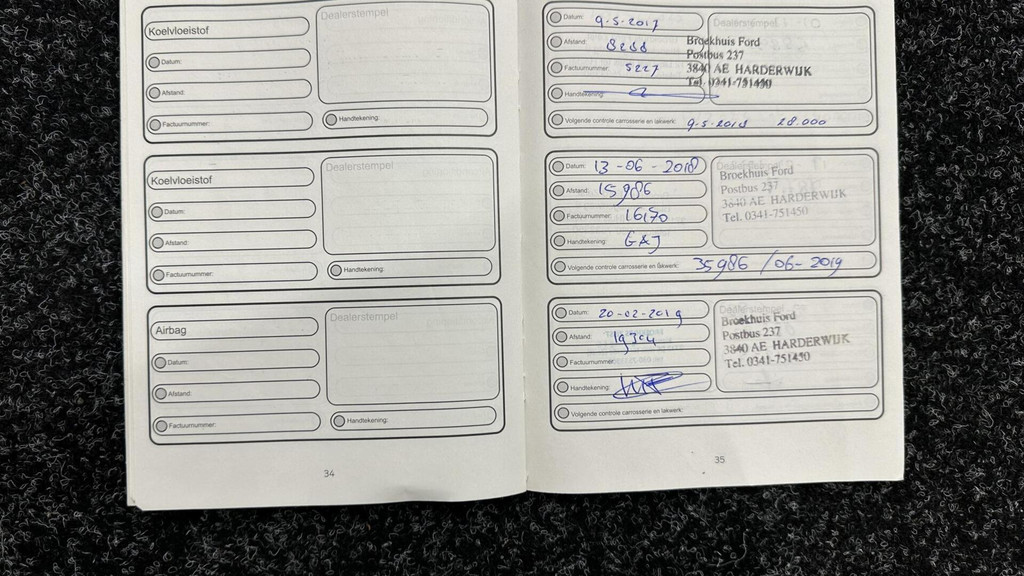 Koelvloeistof
Dealerstempel
Datum:
Afstand:
Factuurnummer:
Handtekening:
Koelvloeistof
Dealerstempel
Datum:
Afstand:
Factuurnummer:
Handtekening:
Airbag
Dealerstempel
Datum:
Afstand:
Factuurnummer:
Handtekening:
34
Datum: 9-5-2017
Afstand: 8288
Factuurnummer: 5227
Handtekening:
Broekhuis Ford
Postbus 237
3840 AE HARDERWIJK
Tel. 0341-751450
Volgende controle carrosserie en lakwerk: 9-5-2018 28.000
Datum: 13-06-2018
Afstand: 15986
Factuurnummer: 16170
Handtekening:
Broekhuis Ford
Postbus 237
3840 AE HARDERWIJK
Tel. 0341-751450
Volgende controle carrosserie en lakwerk: 35986 / 06-2019
Datum: 20-02-2019
Afstand: 19304
Factuurnummer:
Handtekening:
Broekhuis Ford
Postbus 237
3840 AE HARDERWIJK
Tel. 0341-751450
Volgende controle carrosserie en lakwerk:
35